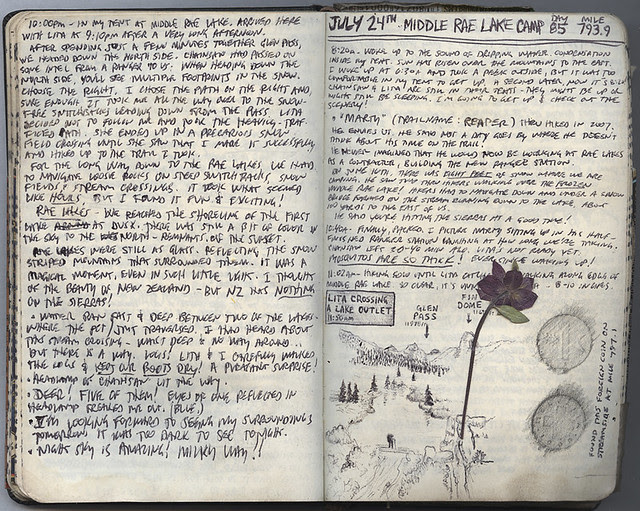 10:00PM - IN MY TENT AT MIDDLE RAE LAKE. ARRIVED HERE
WITH LITA AT 9:10PM AFTER A VERY LONG AFTERNOON.
AFTER SPENDING JUST A FEW MINUTES TOGETHER GLEN PASS,
WE HEADED DOWN THE NORTH SIDE. CHAINSAW HAD PASSED ON
SOME INTEL FROM A RANGER TO US. WHEN HEADING DOWN THE
NORTH SIDE, YOU'LL SEE MULTIPLE FOOTPRINTS IN THE SNOW.
CHOOSE THE RIGHT. I CHOSE THE PATH ON THE RIGHT AND,
SURE ENOUGH IT TOOK ME ALL THE WAY OVER TO THE SNOW-
FREE SWITCHBACKS LEADING DOWN FROM THE PASS. LITA
DECIDED NOT TO FOLLOW ME AND TOOK THE HEAVILY-TRAF-
FICKED PATH. SHE ENDED UP IN A PRECARIOUS SNOW
FIELD CROSSING UNTIL SHE SAW THAT I MADE IT SUCCESSFULLY
AND HIKED UP TO THE TRAIL I TOOK.
FOR THE LONG WAY DOWN TO THE RAE LAKES, WE HAD
TO NAVIGATE LOOSE ROCKS ON STEEP SWITCHBACKS, SNOW
FIELDS, STREAM CROSSINGS. IT TOOK WHAT SEEMED
LIKE HOURS, BUT I FOUND IT FUN & EXCITING!
RAE LAKES - WE REACHED THE SHORELINE OF THE FIRST
LAKE AT DUSK. THERE WAS STILL A BIT OF COLOR IN
THE SKY TO THE - REMNANTS OF THE SUNSET.
RAE LAKES WERE STILL AS GLASS. REFLECTING THE SNOW
STRIPED MOUNTAINS THAT SURROUNDED THEM. IT WAS A
MAGICAL MOMENT, EVEN IN SUCH LITTLE LIGHT. I THOUGHT
OF THE BEAUTY OF NEW ZEALAND - BUT NZ HAS NOTHING
ON THE SIERRAS!
• WATER RAN FAST & DEEP BETWEEN TWO OF THE LAKES
WHERE THE PCT/JMT TRAVERSED. I HAD HEARD ABOUT
THIS STREAM CROSSING - WAIST DEEP & NO WAY AROUND..
BUT THERE IS A WAY. LOGS! LITA & I CAREFULLY WALKED
THE LOGS & KEPT OUR BOOTS DRY! A PLEASANT SURPRISE!
• HEADLAMP OF CHAINSAW LIT THE WAY.
• DEER! FIVE OF THEM! EYES OF ONE REFLECTED IN
HEADLAMP FREAKED ME OUT. (BLUE)
• I'M LOOKING FORWARD TO SEEING MY SURROUNDINGS
TOMORROW! IT WAS TOO DARK TO SEE TONIGHT.
• NIGHT SKY IS AMAZING! MILKY WAY!!
JULY 24TH • MIDDLE RAE LAKE CAMP DAY 85 MILE 793.9
8:20A. WOKE UP TO THE SOUND OF DRIPPING WATER. CONDENSATION
INSIDE MY TENT. SUN HAS RISEN OVER THE MOUNTAINS TO THE EAST.
I WOKE UP AT 6:30A AND TOOK A PEEK OUTSIDE, BUT IT WAS TOO
COMFORTABLE IN MY TENT TO GET UP. A SECOND LATER NOW IT'S 8:20!
CHAINSAW & LITA ARE STILL IN THEIR TENTS - THEY MUST BE UP OR
MIGHT STILL BE SLEEPING. I'M GOING TO GET UP & CHECK OUT THE
SCENERY!
• "MARTY" (TRAILNAME: REAPER) THRU HIKED IN 2007.
HE ENVIES US. HE SAID NOT A DAY GOES BY WHERE HE DOESN'T
THINK ABOUT HIS TIME ON THE TRAIL!
HE NEVER IMAGINED THAT HE WOULD NOW BE WORKING AT RAE LAKES
AS A CONTRACTOR, BUILDING THE NEW RANGER STATION.
ON JUNE 16TH, THERE WAS EIGHT FEET OF SNOW WHERE WE ARE
CAMPING. HE SAW THRU HIKERS WALKING OVER THE FROZEN
WHOLE RAE LAKE! MARTY HAD TO NAVIGATE DOWN AND UNDER A SNOW
BRIDGE FORMED ON THE STREAM RUNNING DOWN TO THE LAKE, ABOUT
50 YARDS TO THE EAST OF US.
HE SAID YOU'RE HITTING THE SIERRAS AT A GOOD TIME!
10:40A. FINALLY, PACKED. I PICTURE MARTY SITTING UP IN HIS HALF-
FINISHED RANGER STATION LAUGHING AT HOW LONG WE'RE TAKING.
CHAINSAW LEFT MIN AGO. LITA'S NOT READY YET.
MOSQUITOS ARE SO THICK! EVER SINCE WAKING UP!
11:02A. HIKING SOLO UNTIL LITA WALKING ALONG EDGE OF
MIDDLE RAE LAKE SO CLEAR, IT'S 8-10 INCHES.
LITA CROSSING
A LAKE OUTLET
11:50AM
GLEN
PASS
FIN
DOME
FOUND THIS FOREIGN COIN ON
STREAMSIDE AT MILE 797.1